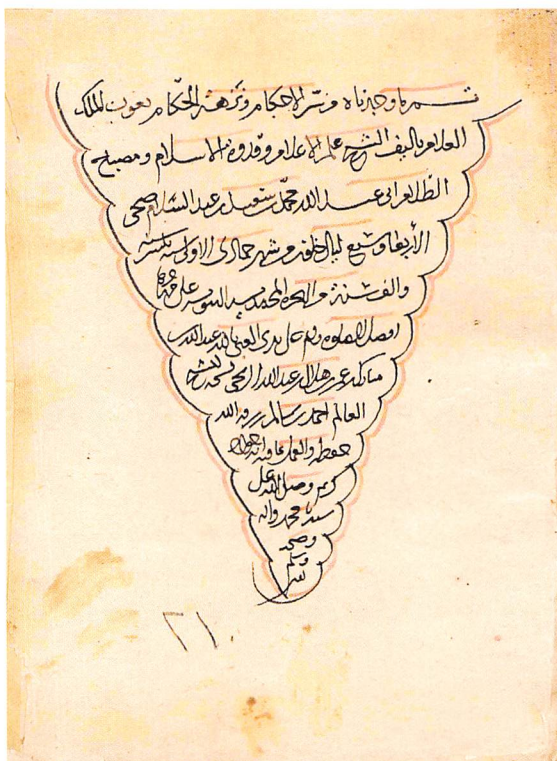 تم ما وجدناه من سر الاحكام ونزهة الحكام بعون الملك
العلام تاليف الشيخ علم الاعلام وقدوة الاسلام ومصباح
الظلام ابي عبد الله محمد بن سعيد بن عبد السلام ضحى
الأربعا وسبع ليال خلون من شهر جمادى الاولى سنة
والف سنة من الهجرة المحمدية النبوية على مهاجرها
افضل الصلوة على يدي الغني بالله عبد الله بن
مبارك بن عمر بن هلال بن عبد الله نسخه للشيخ
العالم احمد بن سالم رزقه الله
حفظه والعمل بما فيه انه جواد
كريم وصلى الله على
سيدنا محمد واله
وصحبه
وسلم
٢١